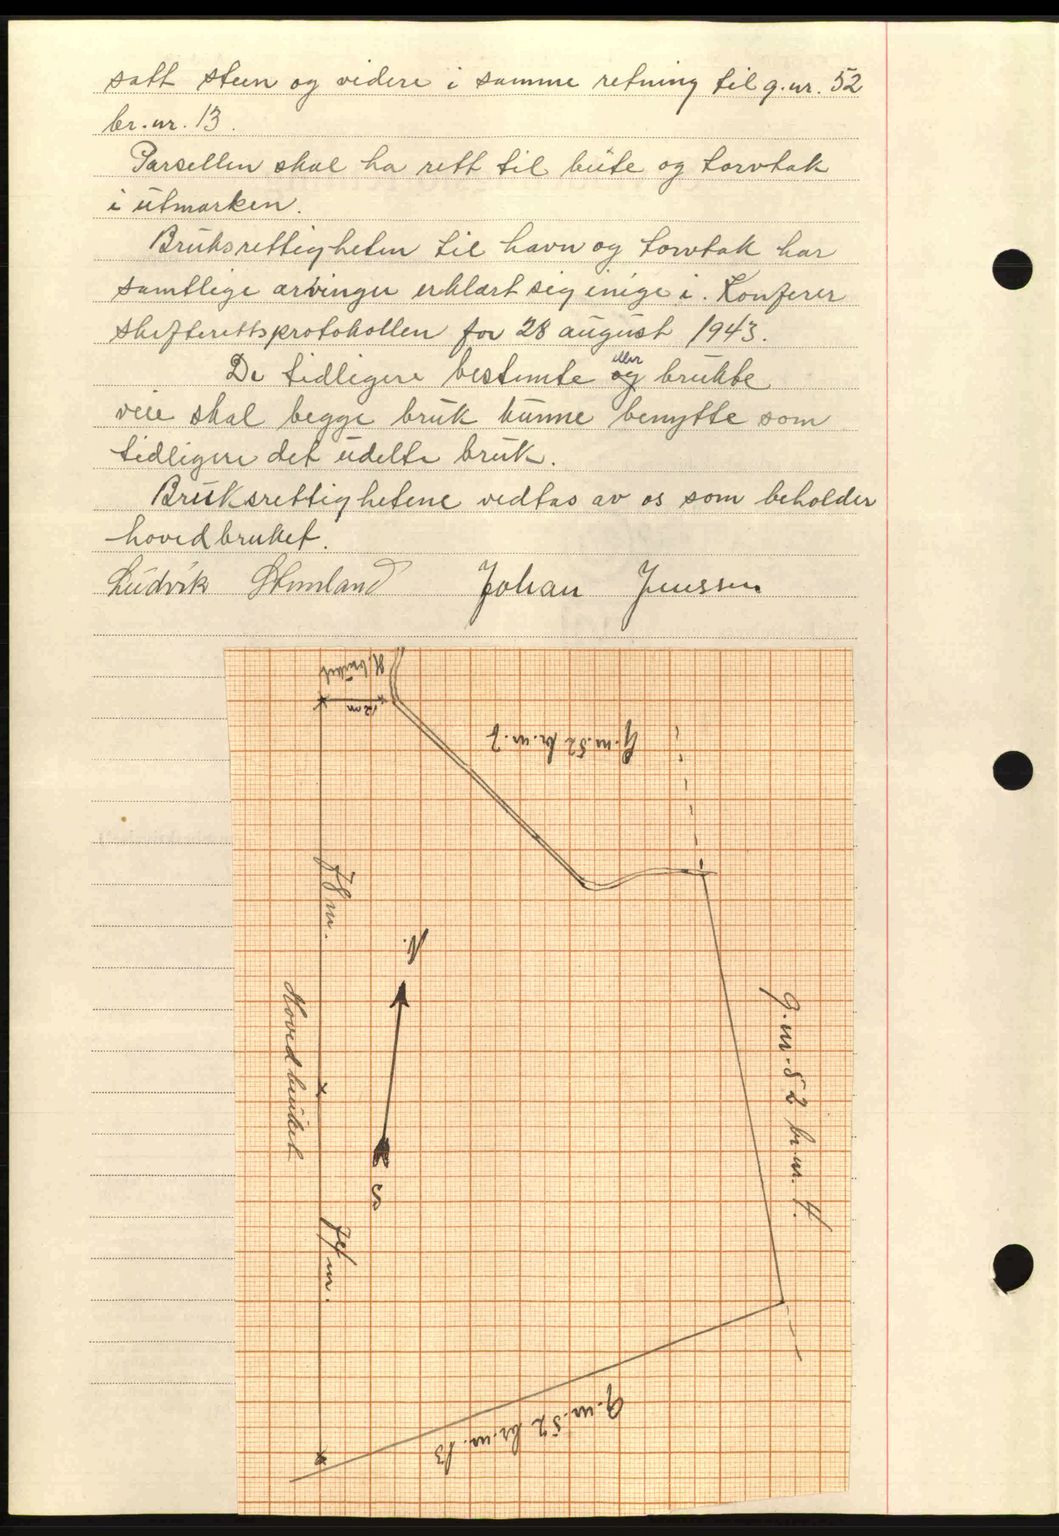 satt steen og videre i samme retning til g.nr. 52
br.nr. 13.
Parsellen skal ha rett til beite og torvtak
i utmarken.
Bruksrettigheten til havn og torvtak har
samtlige arvinger erklært sig enige i. Konferer
skifterettsprotokollen for 28 august 1943.
De tidligere bestemte og eller brukte
veie skal begge bruk kunne benytte som
tidligere det udelte bruk.
Bruksrettighetene vedtas av os som beholder
hovedbruket.
Ludvik Johan Jenssen
H. bruket
12 m
G.nr. 52 br.nr. 7
78 m.
N.
Hovedbruket
g.nr. 52 br.nr. 4.
S
74 m.
g.nr. 52 br.nr. 13